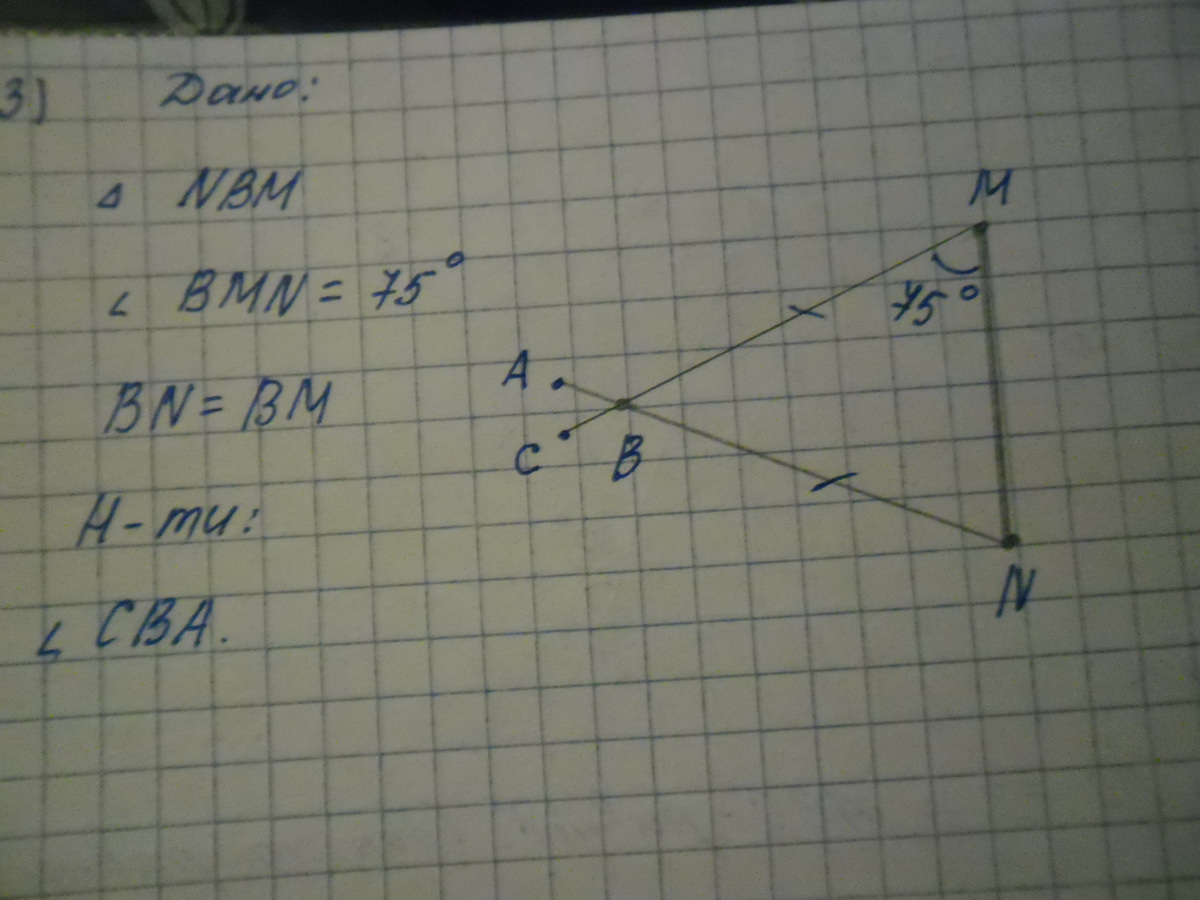 3) Дано:
△ NBM
∠ BMN = 75°
BN = BM
Н-ти:
∠ CBA.
M
75°
A
C
B
N